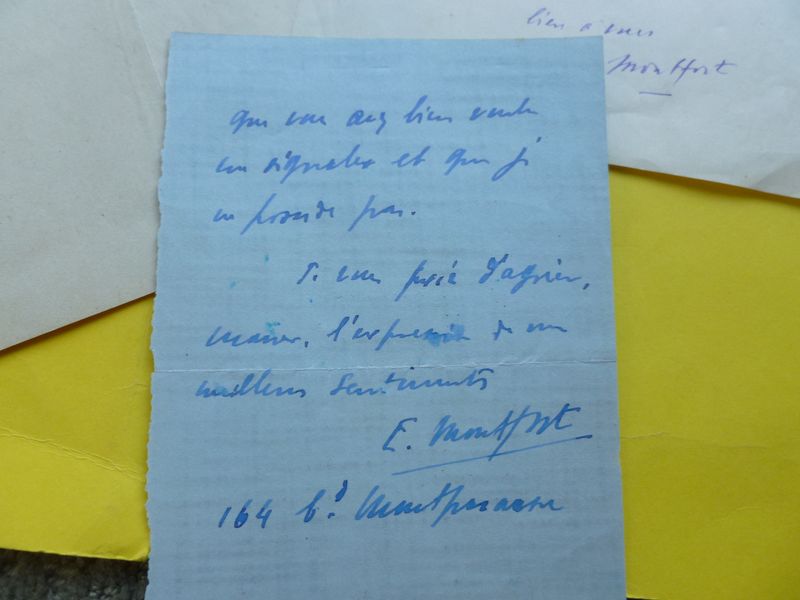 bien à vous
Montfort
que vous avez bien voulu
me signaler et que je
ne possède pas.
Je vous prie d'agréer,
l'expression de mes
meilleurs sentiments
E. Montfort
164 bd Montparnasse